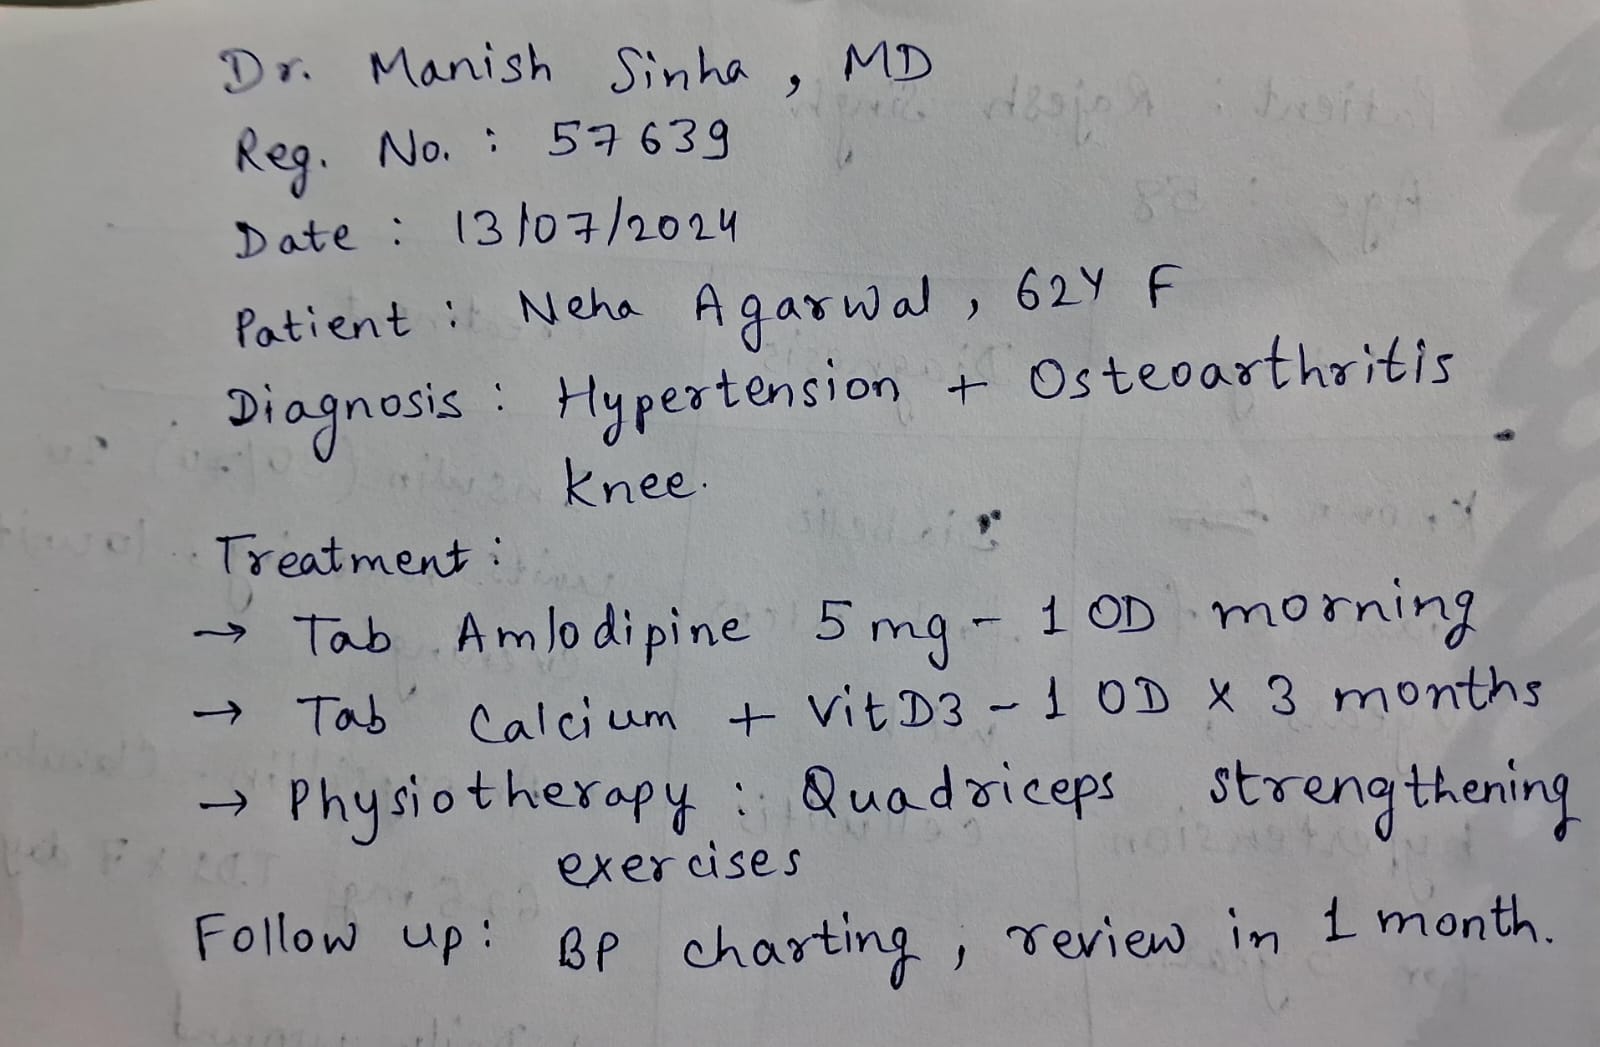 Dr. Manish Sinha, MD
Reg. No. : 57639
Date : 13/07/2024
Patient : Neha Agarwal, 62Y F
Diagnosis : Hypertension + Osteoarthritis
knee.
Treatment :
→ Tab Amlodipine 5 mg - 1 OD morning
→ Tab Calcium + Vit D3 - 1 OD x 3 months
→ Physiotherapy : Quadriceps strengthening
exercises
Follow up : BP charting, review in 1 month.